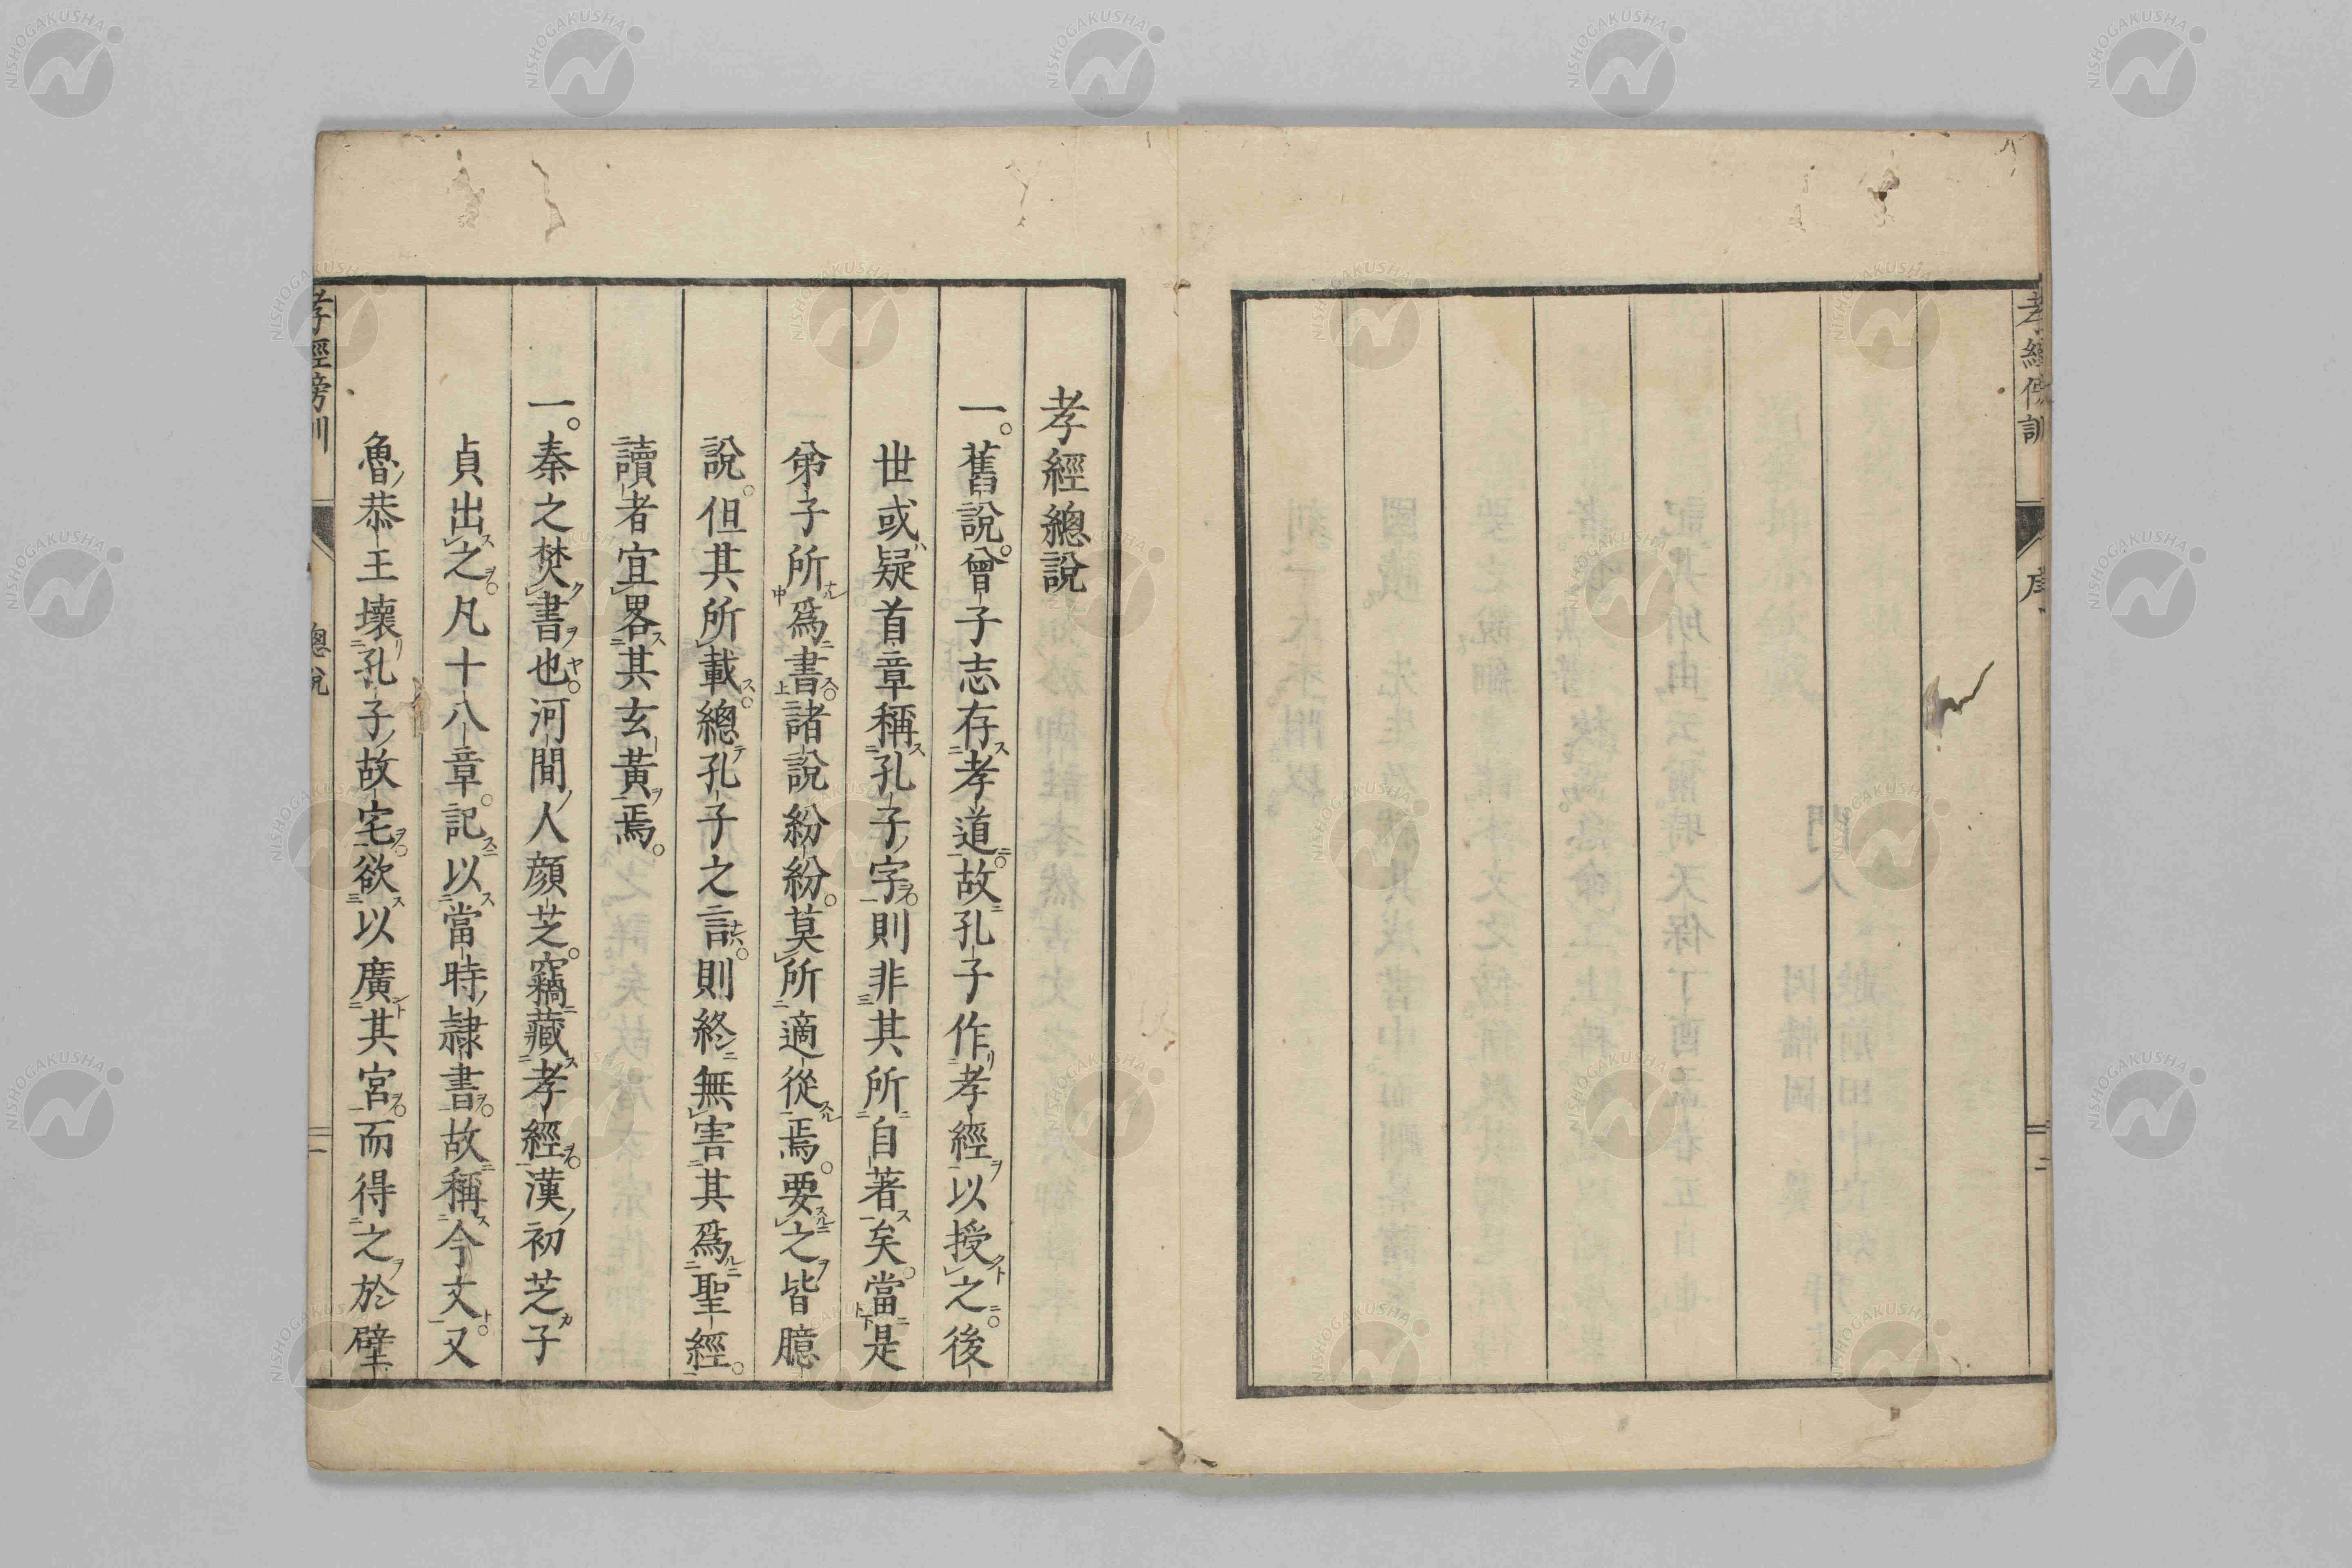 孝經總說
一。舊說。曾子志存孝道。故孔子作孝經以授之。後
世或疑首章稱孔子字。則非其所自著矣。當是
弟子所爲書。諸說紛紛。莫所適從焉。要之皆臆
說。但其所載。總孔子之言。則終無害其爲聖經。
讀者宜畧其玄黃焉。
一。秦之焚書也。河間人顏芝。竊藏孝經。漢初芝子
貞出之。凡十八章。記以當時隷書。故稱今文。又
魯恭王壞孔子故宅。欲以廣其宮。而得之於壁
孝經傍訓
總說
NISHOGAKUSHA